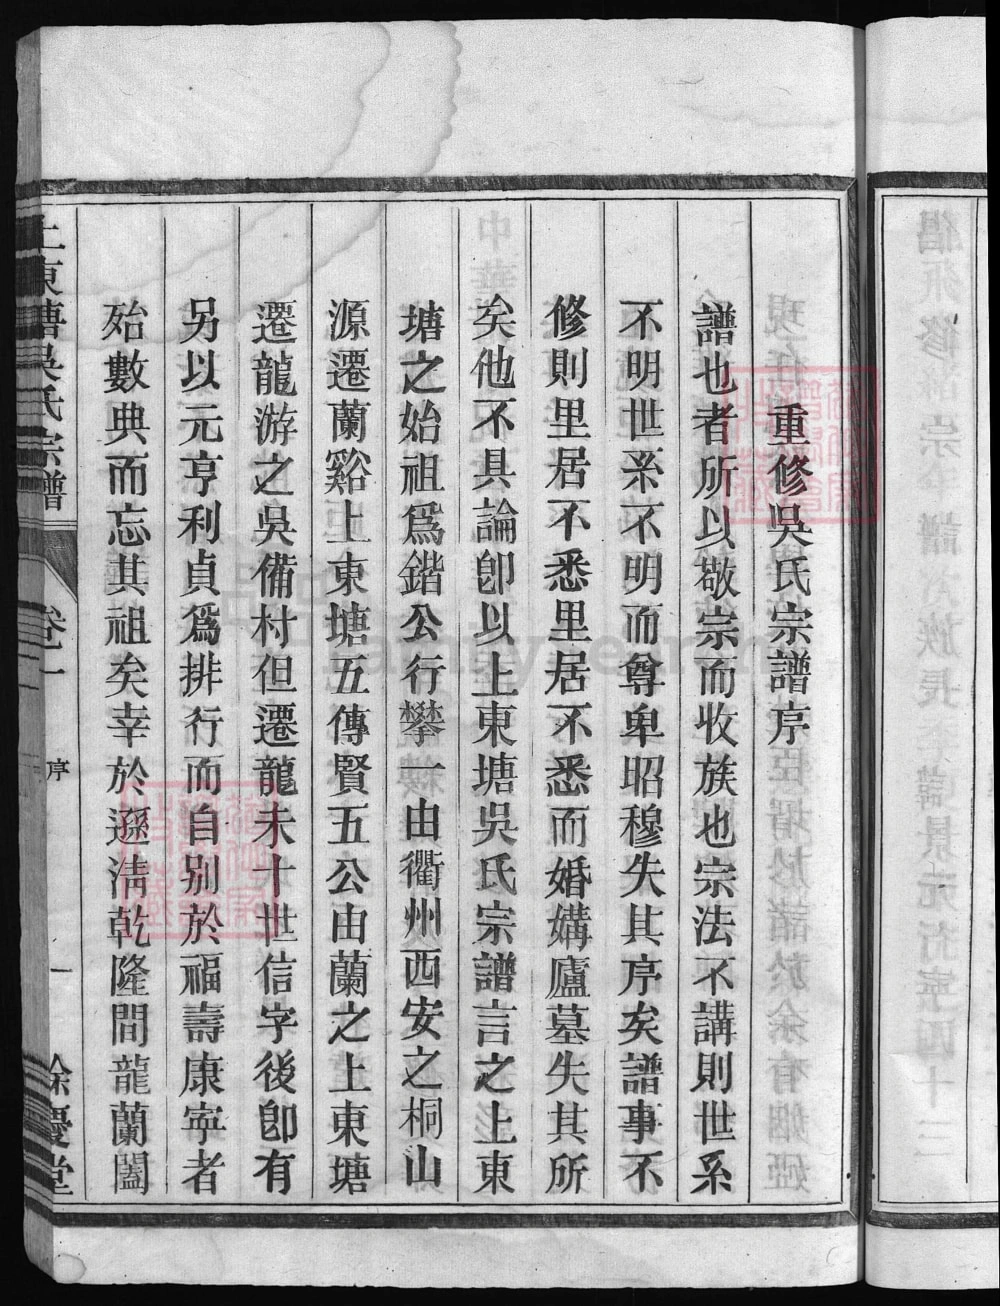 重修吳氏宗譜序
譜也者所以敬宗而收族也宗法不講則世系
不明世系不明而尊卑昭穆失其序矣譜事不
修則里居不悉里居不悉而婚媾廬墓失其所
矣他不具論卽以上東塘吳氏宗譜言之上東
塘之始祖爲鍇公行攀一由衢州西安之桐山
源遷蘭谿上東塘五傳賢五公由蘭之上東塘
遷龍游之吳備村但遷龍未十世信字後卽有
另以元亨利貞爲排行而自別於福壽康寧者
殆數典而忘其祖矣幸於遜淸乾隆間龍蘭闔
上東塘吳氏宗譜
卷一
序
一
餘慶堂